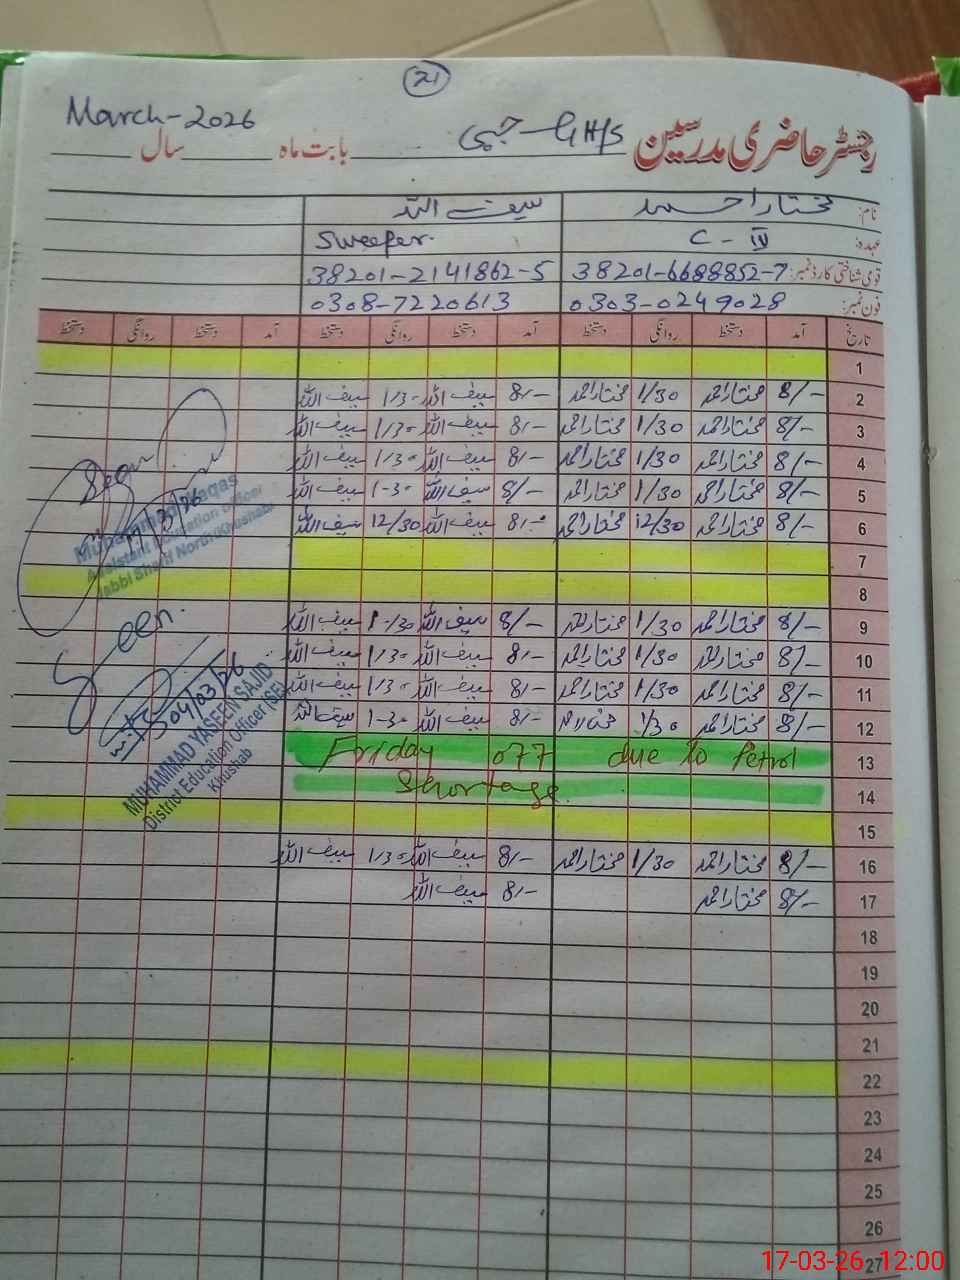 21
March-2026
رجسٹر حاضری مدرسین GHS جبی بابت ماہ سال
نام: مختار احمد سیف اللہ
عہدہ: C - IV Sweeper.
قومی شناختی کارڈ نمبر: 38201-6688852-7 38201-2141862-5
فون نمبر: 0303-0249028 0308-7220613
تاریخ آمد دستخط روانگی دستخط آمد دستخط روانگی دستخط آمد دستخط روانگی دستخط
1
2 8/- مختار احمد 1/30 مختار احمد 8/- سیف اللہ 1/30 سیف اللہ
3 8/- مختار احمد 1/30 مختار احمد 8/- سیف اللہ 1/30 سیف اللہ
4 8/- مختار احمد 1/30 مختار احمد 8/- سیف اللہ 1/30 سیف اللہ
5 8/- مختار احمد 1/30 مختار احمد 8/- سیف اللہ 1-30 سیف اللہ
6 8/- مختار احمد 12/30 مختار احمد 8/- سیف اللہ 12/30 سیف اللہ
7
8
9 8/- مختار احمد 1/30 مختار احمد 8/- سیف اللہ 1-/30 سیف اللہ
10 8/- مختار احمد 1/30 مختار احمد 8/- سیف اللہ 1/30 سیف اللہ
11 8/- مختار احمد 1/30 مختار احمد 8/- سیف اللہ 1/30 سیف اللہ
12 8/- مختار احمد 1/30 8/- سیف اللہ 1-30 سیف اللہ
13 Friday off due to Petrol
14 Shortage
15
16 8/- مختار احمد 1/30 مختار احمد 8/- سیف اللہ 1/30 سیف اللہ
17 8/- مختار احمد 8/- سیف اللہ
18
19
20
21
22
23
24
25
26
27
Seen
Muhammad Waqas
Assistant Education Officer
Jabbi Sharif North (Khushab)
Seen.
04/03/26
MUHAMMAD YASEEN SAJID
District Education Officer (SE)
Khushab
17-03-26 12:00